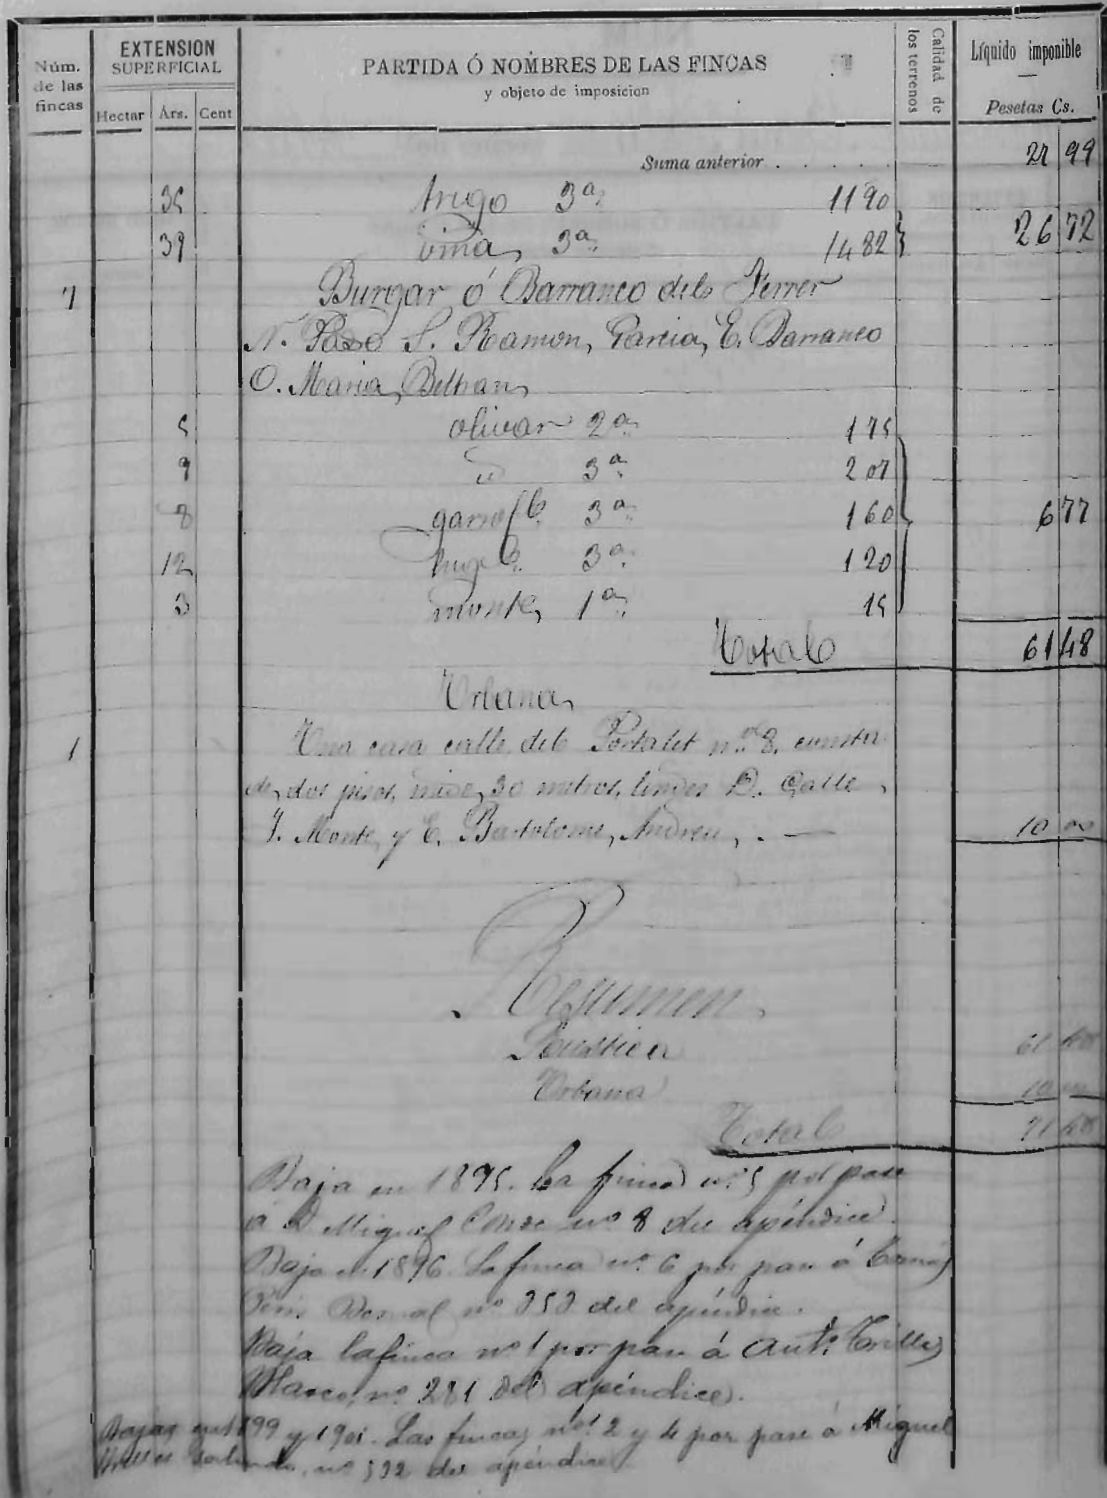 Núm. de las fincas
EXTENSION SUPERFICIAL
Hectar Ars. Cent
PARTIDA Ó NOMBRES DE LAS FINCAS
y objeto de imposicion
Calidad de los terrenos
Líquido imponible
Pesetas Cs.
Suma anterior . . . . . 27 99
35 trigo 3ª 1190
39 viña, 3ª 1482 26 72
7 Burgar ó Barranco dels Ferrer
N. Paso S. Ramon, Garcia, E. Barranco
O. Maria, Beltran,
5 olivar 2ª 175
9 id 3ª 207
8 garrof.. 3ª 160 6 77
12 3ª 120
3 monte, 1ª 15
Total 61 48
Urbana,
1 Una casa calle del Portalet nº 8, consta
de, dos pisos, mide, 30 metros, lindes D. Calle,
Y. Monte, y E. Bartolome, Andreu, . —
10 00
Resumen
Rustica 61 48
Urbana 10 00
Total 71 48
Baja en 1895. La finca nº 5 por pase
á D Miguel nº 8 del apéndice.
Baja en 1896. La finca nº 6 por pase á
al nº 252 del apéndice.
Baja la finca nº 1 por pase á Antº Trilles
Blasco, nº 281 del apéndice.
Bajas 1899 y 1901. Las fincas nos. 2 y 4 por pase á Miguel
nº 532 del apéndice